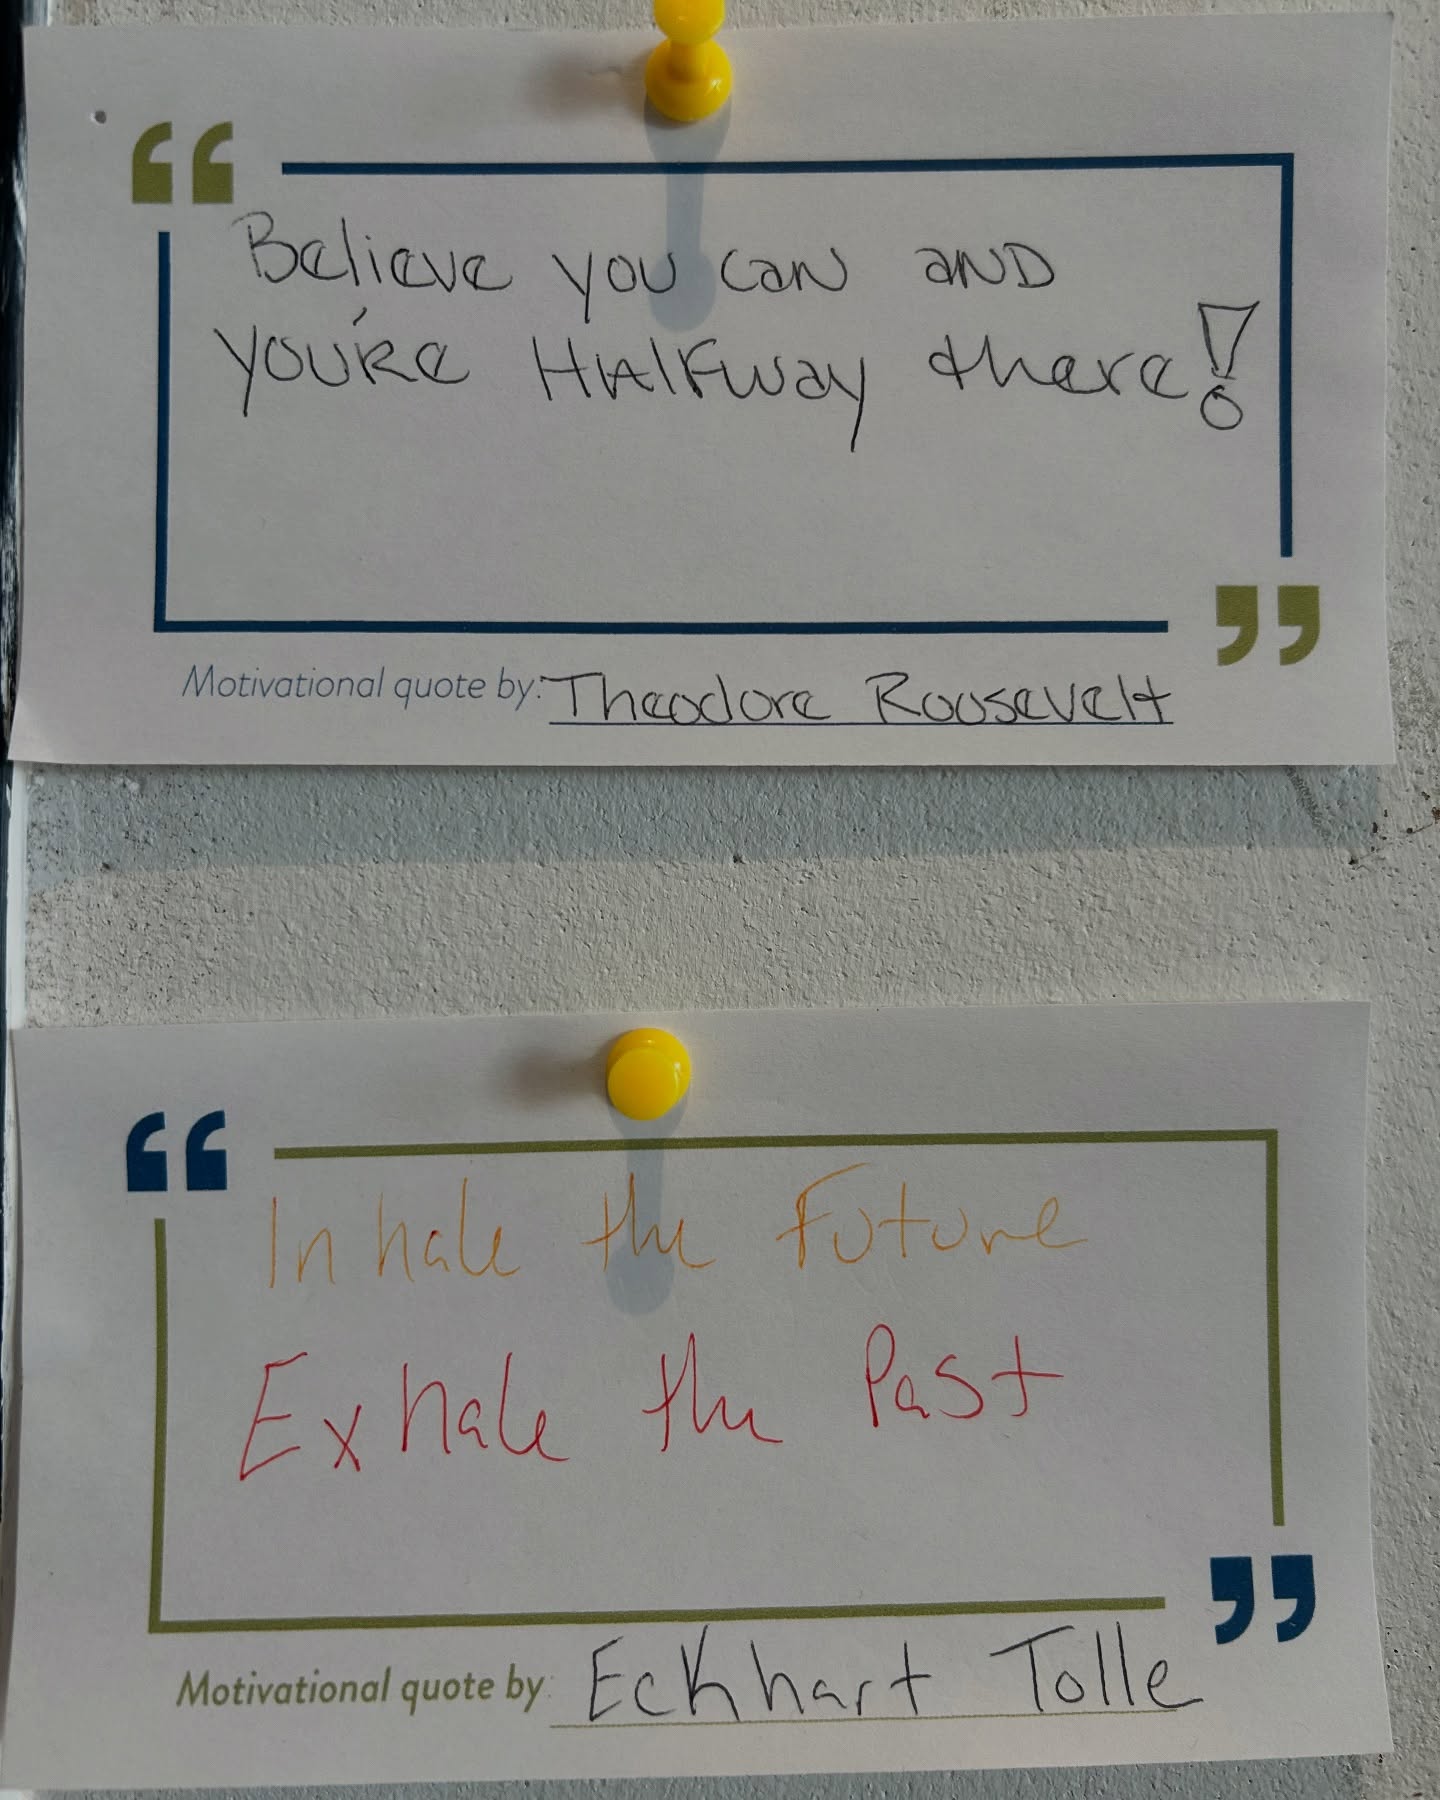 “
Believe you can and
you're Halfway there!
”
Motivational quote by: Theodore Roosevelt
“
Inhale the Future
Exhale the Past
”
Motivational quote by: Eckhart Tolle